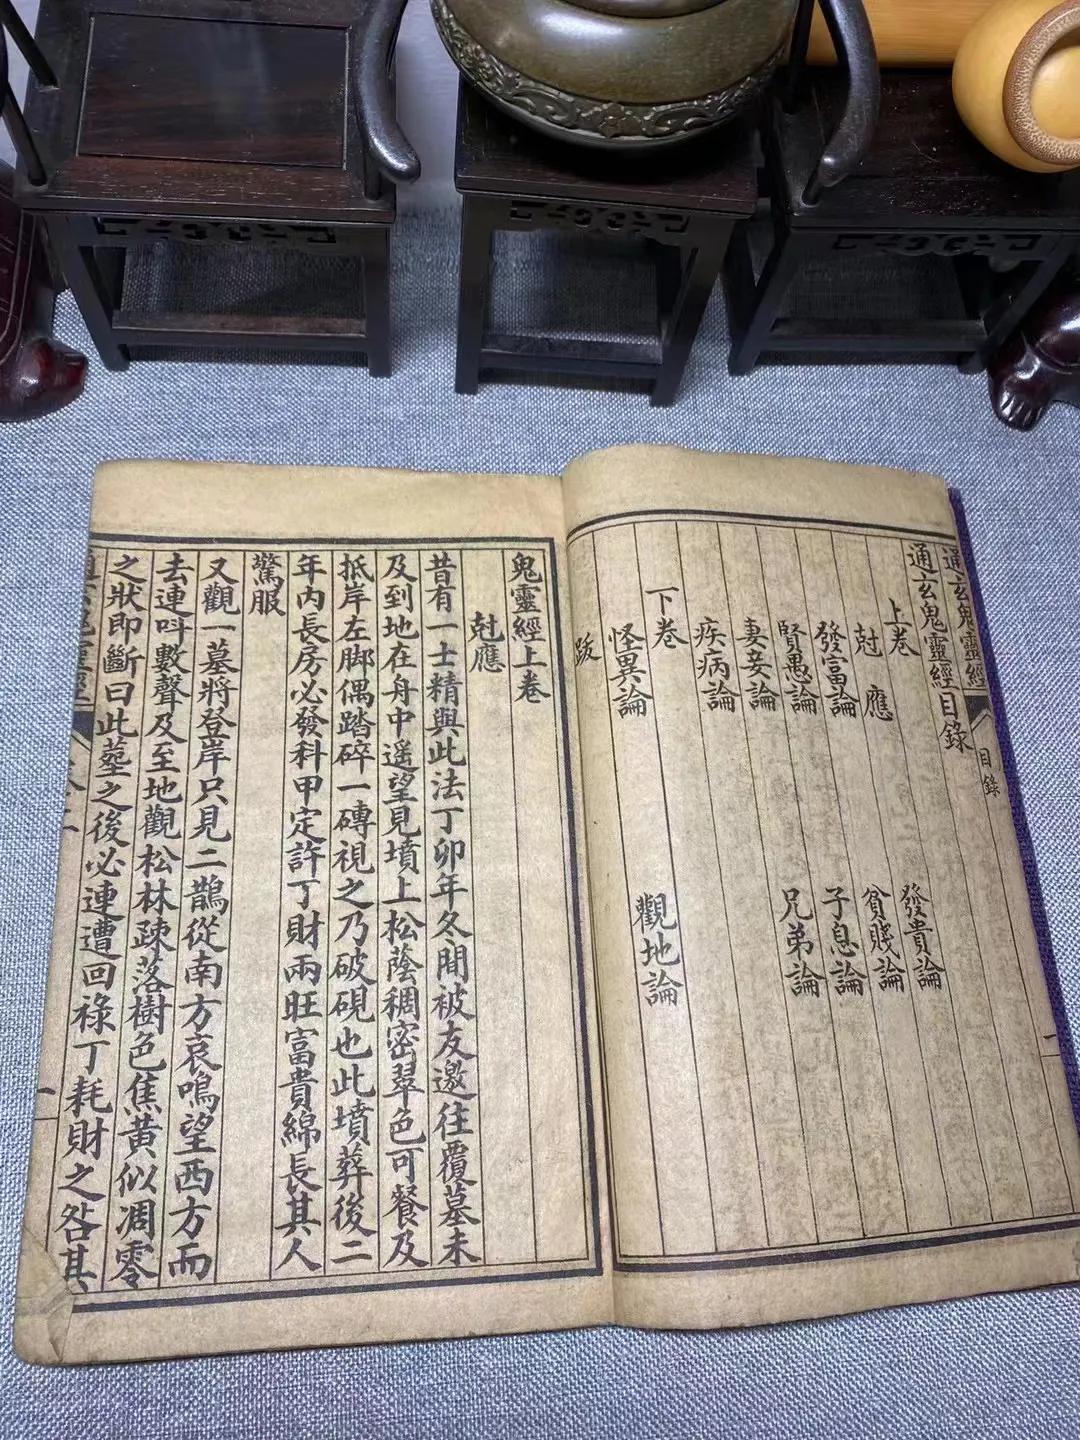 通玄鬼靈經
目錄
通玄鬼靈經目錄
上卷
尅應
發貴論
發富論
貧賤論
賢愚論
子息論
妻妾論
兄弟論
疾病論
下卷
怪異論
觀地論
跋
鬼靈經上卷
尅應
昔有一士精與此法丁卯年冬間被友邀往覆墓未
及到地在舟中遥望見墳上松蔭稠密翠色可餐及
抵岸左脚偶踏碎一磚視之乃破硯也此墳葬後二
年內長房必發科甲定許丁財兩旺富貴綿長其人
驚服
又觀一墓將登岸只見二鵲從南方哀鳴望西方而
去連呌數聲及至地觀松林疎落樹色焦黃似凋零
之狀即斷曰此塟之後必連遭回祿丁耗財之咎其